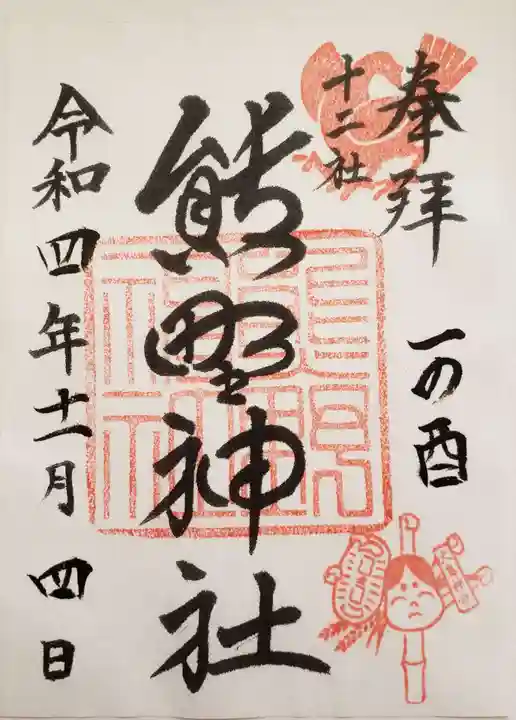 奉拝
一の酉
十二社
熊野神社
令和四年十一月四日